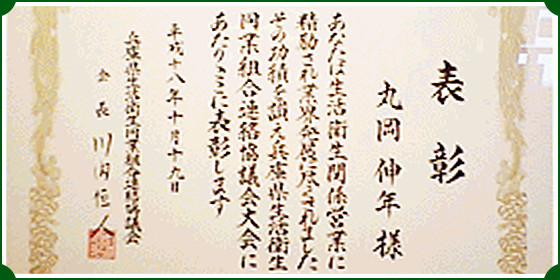 表彰
丸岡伸年様
あなたは生活衛生関係営業に
精励され業界発展に尽されました
その功績を讃え兵庫県生活衛生
同業組合連絡協議会大会に
あたりここに表彰します
平成十八年十月十九日
兵庫県生活衛生同業組合連絡協議会
会長 川内恒人